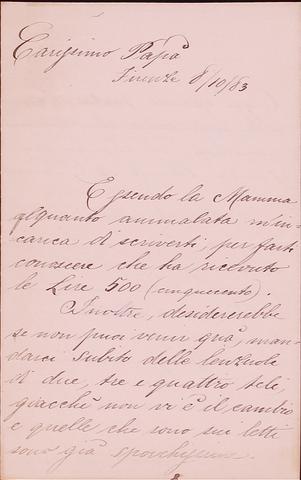 Carissimo Papà
Firenze 8/10/83
Essendo la Mamma
alquanto ammalata m'in-
carica di scriverti, per farti
conoscere che ha ricevuto
le Lire 500 (cinquecento).
Inoltre, desidererebbe
se non puoi venir quà, man-
darci subito delle lenzuola
di due, tre e quattro teli,
giacchè non vi è il cambio
e quelle che sono sui letti
sono già sporchissime.